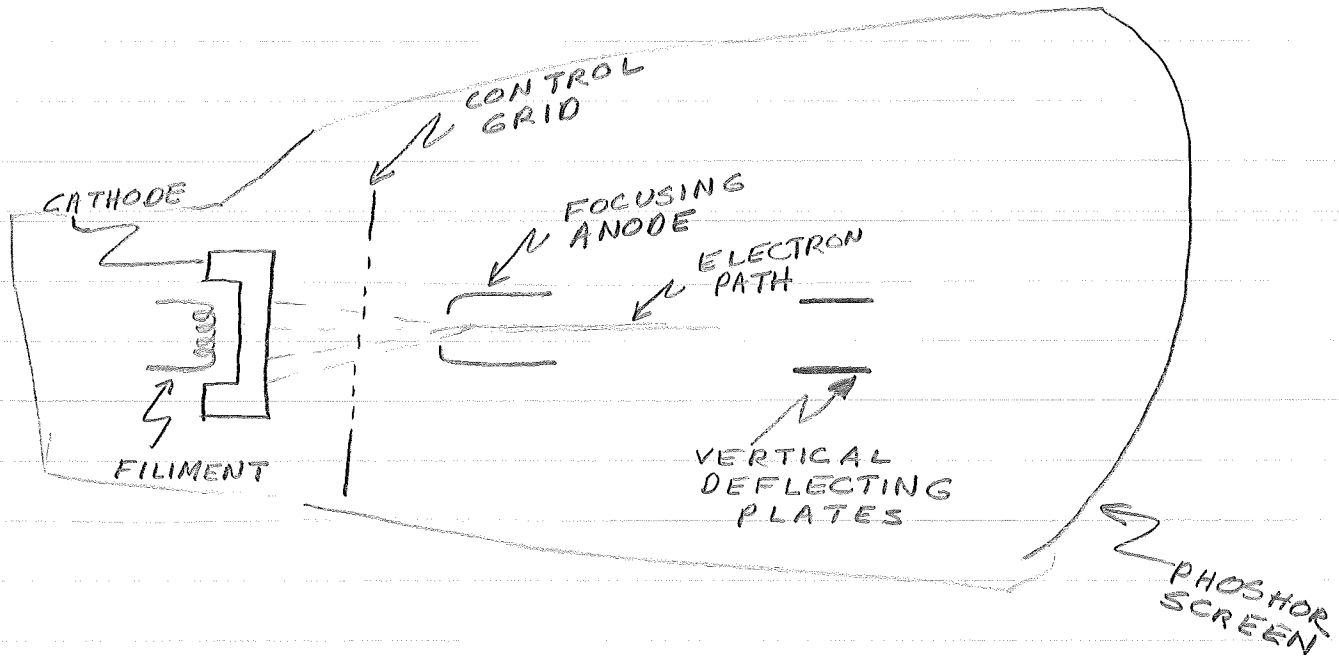 CONTROL
GRID
CATHODE
FOCUSING
ANODE
ELECTRON
PATH
FILIMENT
VERTICAL
DEFLECTING
PLATES
PHOSHOR
SCREEN